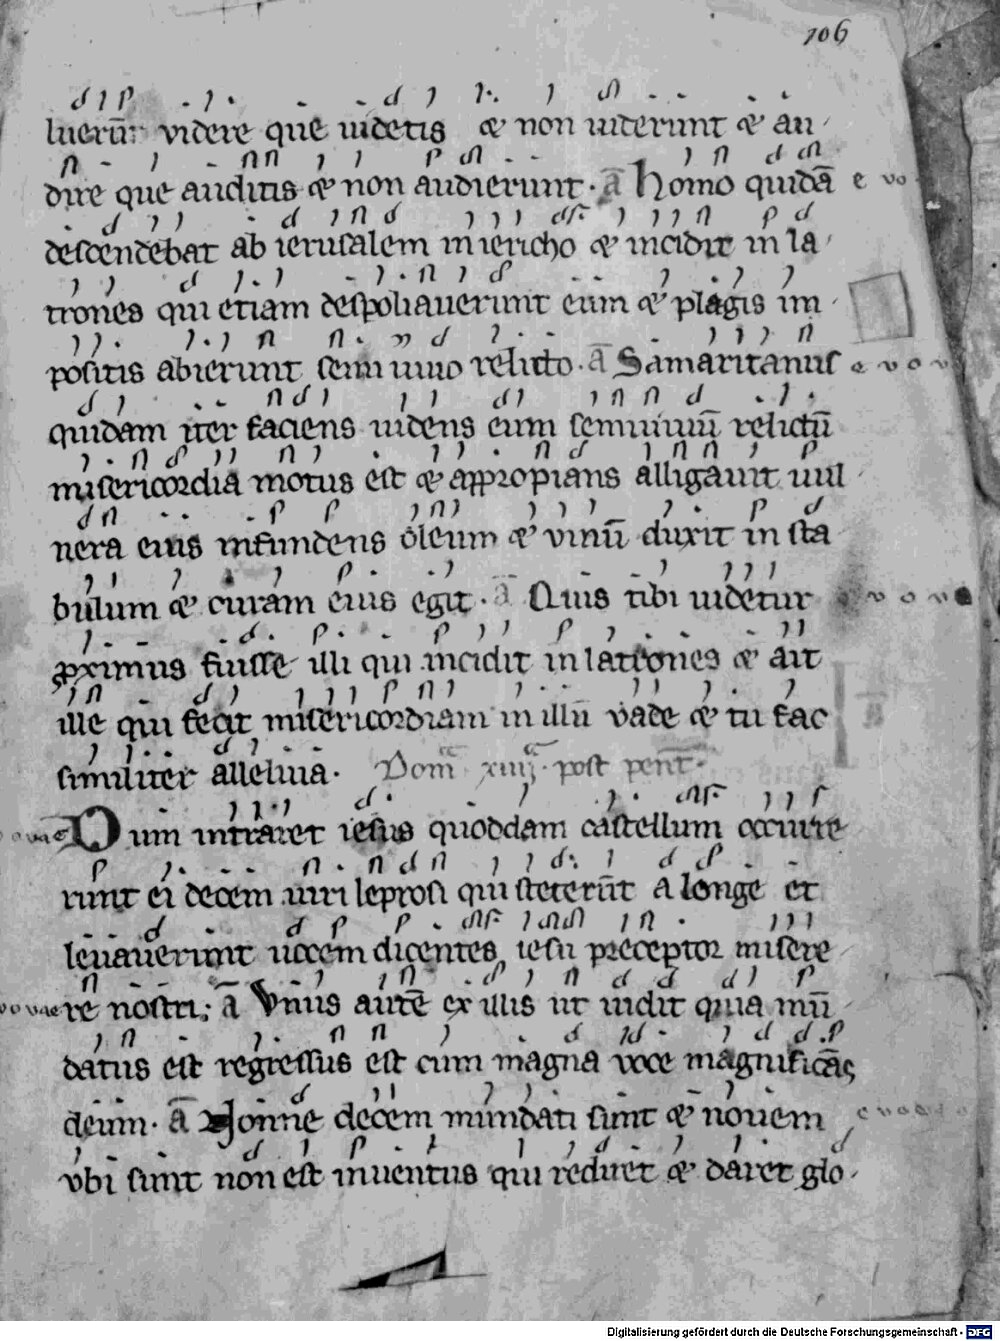 106
luerūt videre que uidetis & non uiderunt & au
dire que auditis & non audierunt · ā Homo quidā e vo
descendebat ab ierusalem in iericho & incidit in la
trones qui etiam despoliauerunt eum & plagis im
positis abierunt semi uiuo relicto · ā Samaritanus e v o v
quidam iter faciens uidens eum semiuiuū relictū
misericordia motus est & appropians alligauit uul
nera eius infundens oleum & vinū duxit in sta
bulum & curam eius egit · ā Quis tibi uidetur
ꝓximus fuisse illi qui incidit in latrones & ait
ille qui fecit misericordiam in illū vade & tu fac
similiter alleluia · Dom̄ xiiij · post pent̄ ·
Dum intraret iesus quoddam castellum occurre
runt ei decem uiri leprosi qui steterūt a longe et
leuauerunt uocem dicentes iesu preceptor misere
re nostri; ā Vnus autē ex illis ut uidit quia mū
datus est regressus est cum magna voce magnificās
deum · ā Nonne decem mundati sunt & nouem
vbi sunt non est inuentus qui rediret & daret glo
Digitalisierung gefördert durch die Deutsche Forschungsgemeinschaft - DFG